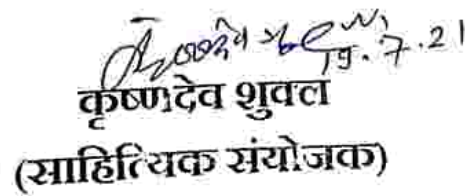 19.7.21
कृष्णदेव शुक्ल
(साहित्यिक संयोजक)